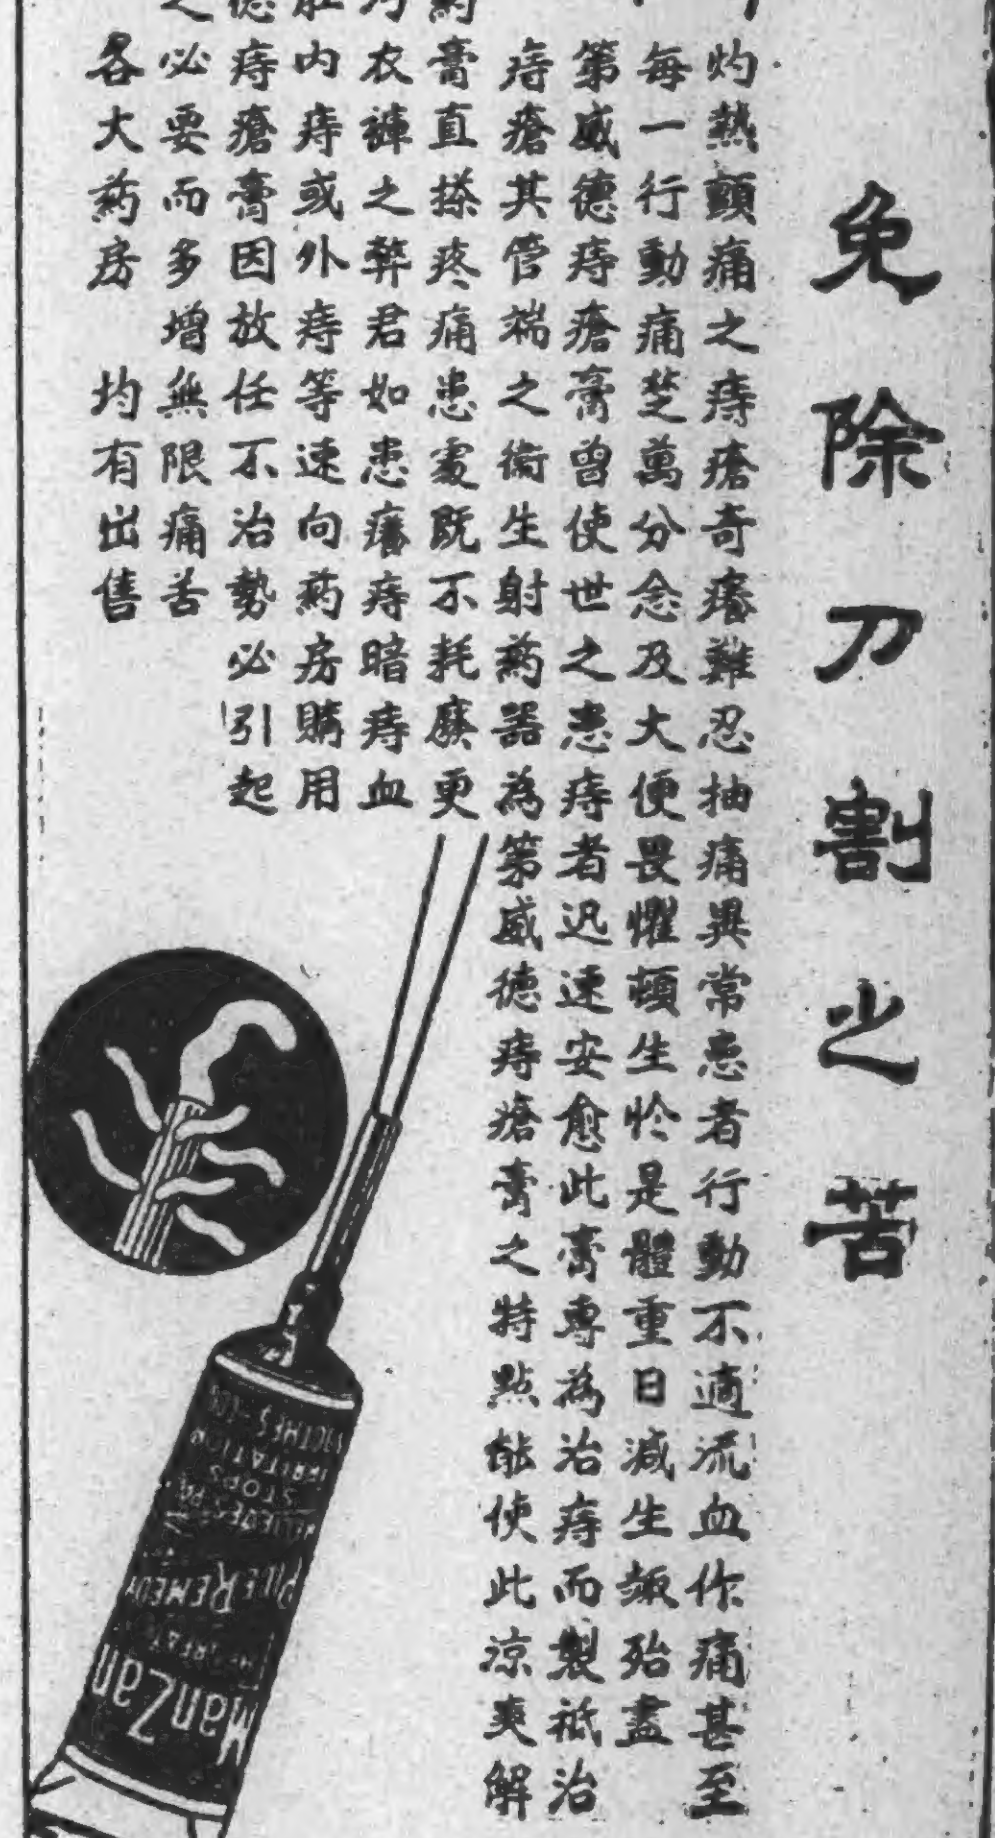 免除刀割之苦
灼熱顫痛之痔瘡奇癢難忍抽痛異常患者行動不適流血作痛甚至
每一行動痛楚萬分念及大便畏懼頓生於是體重日減生趣殆盡
第威德痔瘡膏曾使世之患痔者迅速安愈此膏專為治痔而製祇治
痔瘡其管端之衛生射药器為第威德痔瘡膏之特點能使此涼爽解
药膏直搽疼痛患處既不耗廢更
污衣褲之弊君如患癢痔暗痔血
肛內痔或外痔等速向药房購用
德痔瘡膏因放任不治勢必引起
之必要而多增無限痛苦
各大药房 均有出售
ManZan
PILE REMEDY
RELIEVES PA
STOPS
IRRITATION